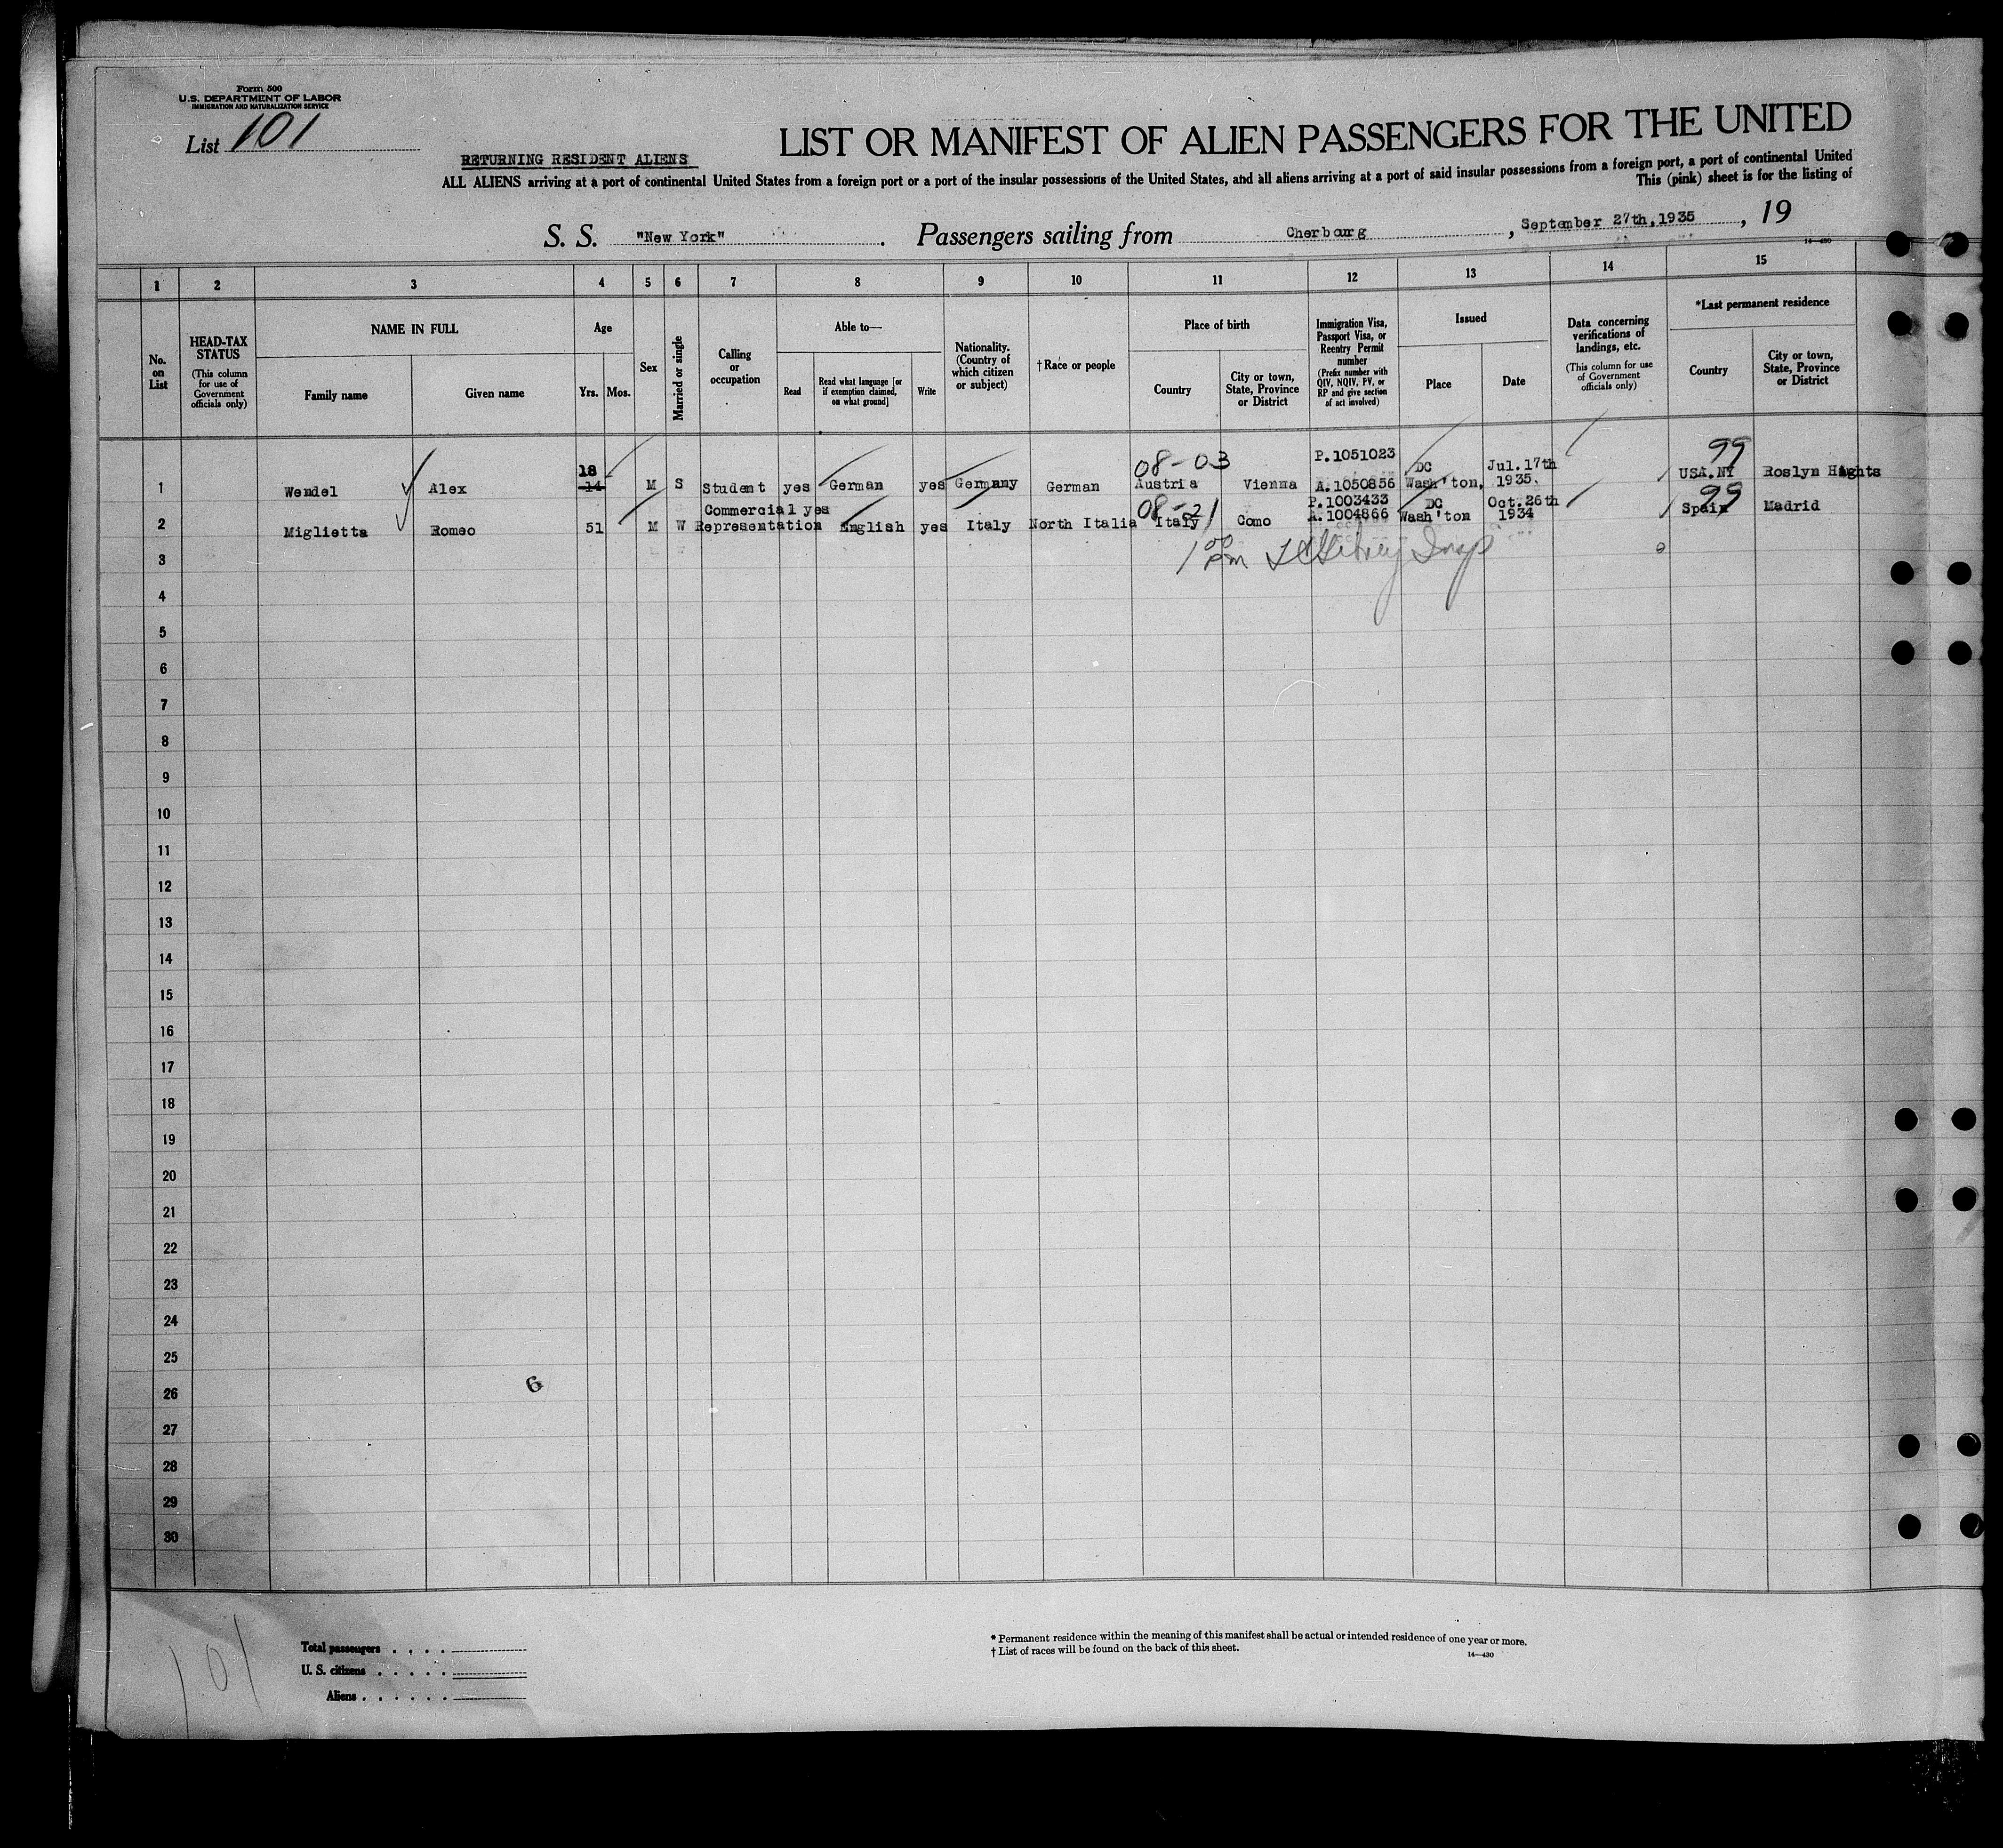 Form 500
U.S. DEPARTMENT OF LABOR
IMMIGRATION AND NATURALIZATION SERVICE
List 101
LIST OR MANIFEST OF ALIEN PASSENGERS FOR THE UNITED
RETURNING RESIDENT ALIENS
ALL ALIENS arriving at a port of continental United States from a foreign port or a port of the insular possessions of the United States, and all aliens arriving at a port of said insular possessions from a foreign port, a port of continental United
This (pink) sheet is for the listing of
S. S. "New York" . Passengers sailing from Cherbourg , September 27th,1935 , 19
14—430
1 2 3 4 5 6 7 8 9 10 11 12 13 14 15
No. on List
HEAD-TAX STATUS
(This column for use of Government officials only)
NAME IN FULL
Family name Given name
Age
Yrs. Mos.
Sex
Married or single
Calling or occupation
Able to—
Read
Read what language [or if exemption claimed, on what ground]
Write
Nationality. (Country of which citizen or subject)
†Race or people
Place of birth
Country
City or town, State, Province or District
Immigration Visa, Passport Visa, or Reentry Permit number
(Prefix number with QIV, NQIV, PV, or RP and give section of act involved)
Issued
Place Date
Data concerning verifications of landings, etc.
(This column for use of Government officials only)
*Last permanent residence
Country
City or town, State, Province or District
18 08-03 P.1051023 DC Jul.17th 99
1 Wendel Alex 14 M S Student yes German yes Germany German Austria Vienna A.1050856 Wash'ton, 1935. USA.NY Roslyn Hights
Commercial yes 08-21 P.1003433 DC Oct.26th 99
2 Miglietta Romeo 51 M W Representation English yes Italy North Italia Italy Como A.1004866 Wash'ton 1934 Spain Madrid
1 00 pm Insp
3
4
5
6
7
8
9
10
11
12
13
14
15
16
17
18
19
20
21
22
23
24
25
26
6
27
28
29
30
101
Total passengers . . . .
U. S. citizens . . . . .
Aliens . . . . . .
* Permanent residence within the meaning of this manifest shall be actual or intended residence of one year or more.
† List of races will be found on the back of this sheet.
14—430